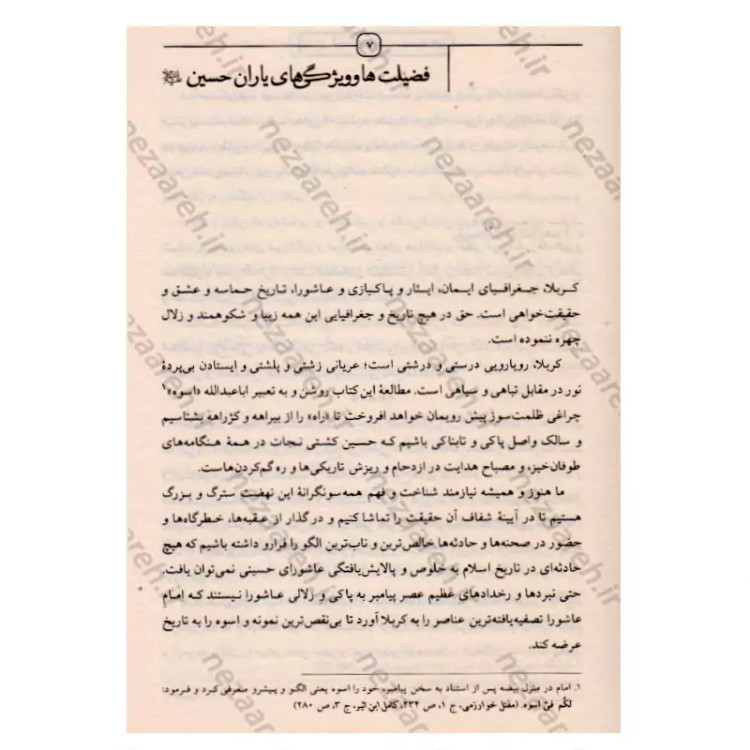 ۷
فضیلت‌ها و ویژگی‌های یاران حسین
کربلا، جغرافیای ایمان، ایثار و پاکبازی و عاشورا، تاریخ حماسه و عشق و
حقیقت‌خواهی است. حق در هیچ تاریخ و جغرافیایی این همه زیبا و شکوهمند و زلال
چهره ننموده است.
کربلا، رویارویی درستی و درشتی است؛ عریانی زشتی و پلشتی و ایستادن بی‌پردهٔ
نور در مقابل تباهی و سیاهی است. مطالعهٔ این کتاب روشن و به تعبیر اباعبدالله «اسوه»۱
چراغی ظلمت‌سوز پیش رویمان خواهد افروخت تا «راه» را از بیراهه و کژراهه بشناسیم
و سالک واصل پاکی و تابناکی باشیم که حسین کشتی نجات در همهٔ هنگامه‌های
طوفان‌خیز، و مصباح هدایت در ازدحام و ریزش تاریکی‌ها و ره گم‌کردن‌هاست.
ما هنوز و همیشه نیازمند شناخت و فهم همه‌سونگرانهٔ این نهضت سترگ و بزرگ
هستیم تا در آیینهٔ شفاف آن حقیقت را تماشا کنیم و در گذار از عقبه‌ها، خطرگاه‌ها و
حضور در صحنه‌ها و حادثه‌ها خالص‌ترین و ناب‌ترین الگو را فرارو داشته باشیم که هیچ
حادثه‌ای در تاریخ اسلام به خلوص و پالایش‌یافتگی عاشورای حسینی نمی‌توان یافت.
حتی نبردها و رخدادهای عظیم عصر پیامبر به پاکی و زلالی عاشورا نیستند که امام
عاشورا تصفیه‌یافته‌ترین عناصر را به کربلا آورد تا بی‌نقص‌ترین نمونه و اسوه را به تاریخ
عرضه کند.
۱. امام در منزل بیضه پس از استناد به سخن پیامبر، خود را اسوه یعنی الگو و پیشرو معرفی کرد و فرمود:
لَکُم فیَّ اسوه. (مقتل خوارزمی، ج ۱، ص ۲۳۴، کامل ابن اثیر، ج ۳، ص ۲۸۰)
nezaareh.ir
nezaareh.ir
nezaareh.ir
nezaareh.ir
nezaareh.ir
nezaareh.ir
nezaareh.ir